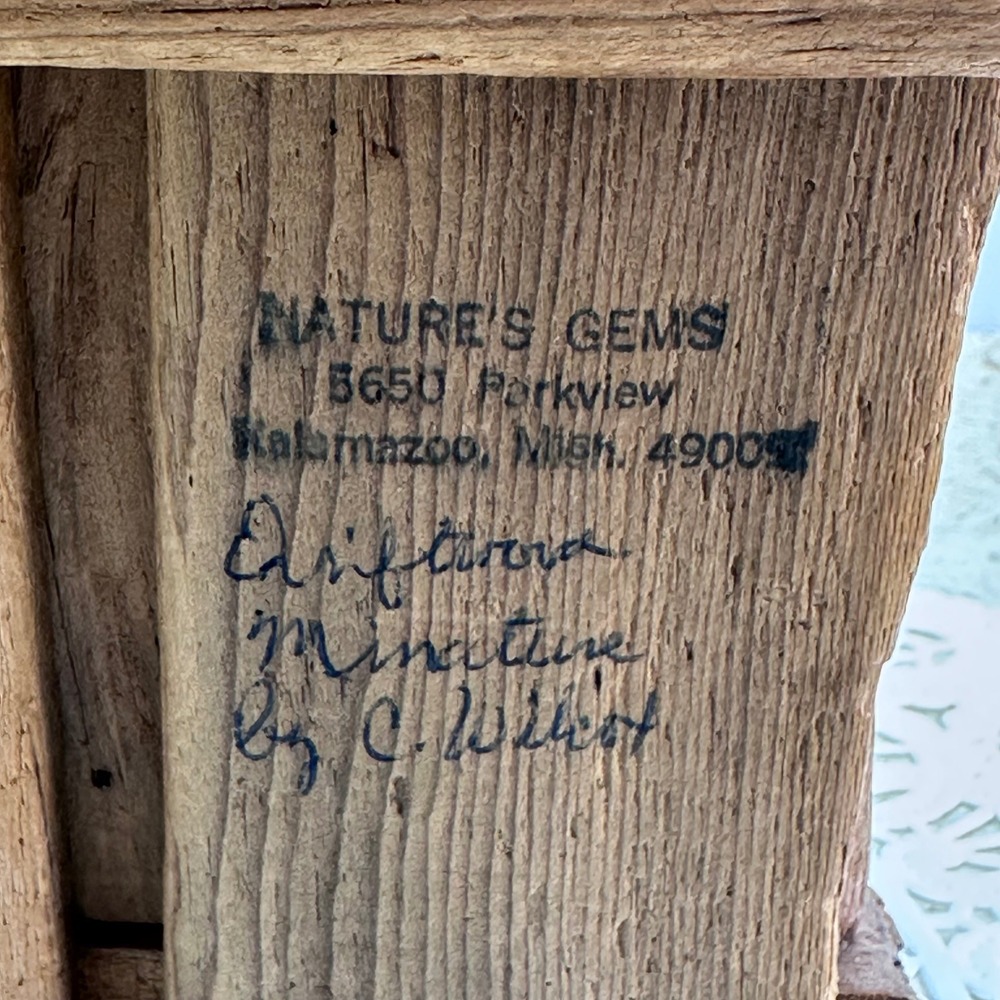 NATURE'S GEMS
5650 Parkview
Kalamazoo, Mich. 49009
Driftwood
Minature
by C. Wilcox